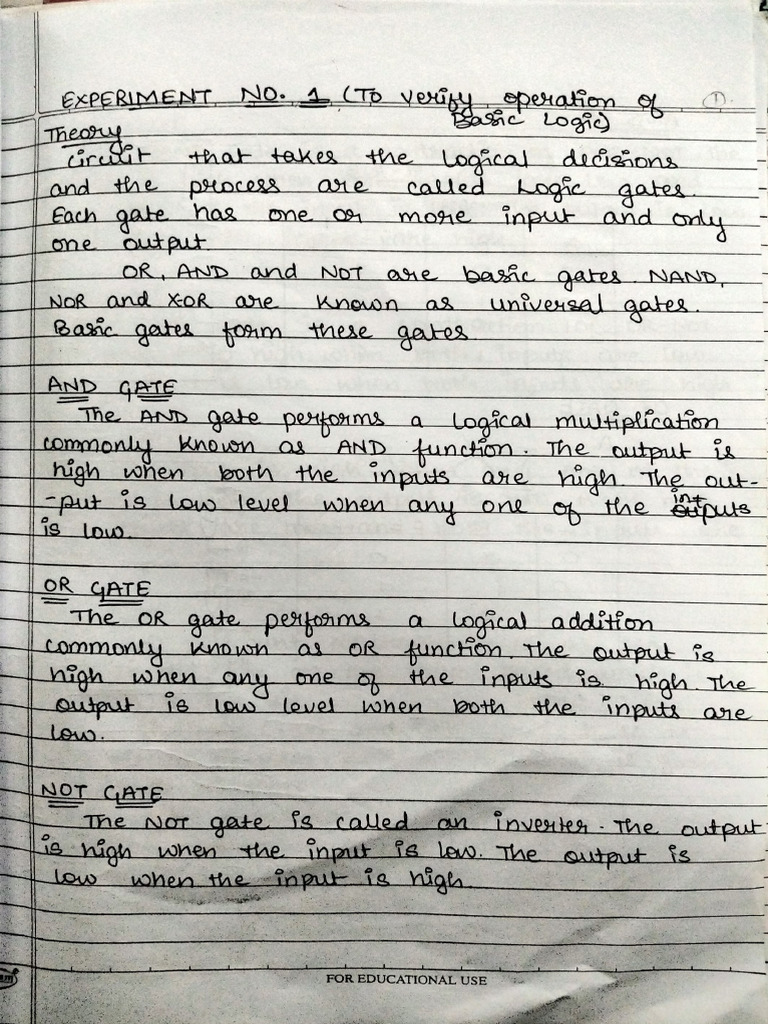 EXPERIMENT NO. 1 (To verify operation of ①
Basic Logic)
Theory
Circuit that takes the logical decisions
and the process are called Logic gates.
Each gate has one or more input and only
one output.
OR, AND and NOT are basic gates. NAND,
NOR and X-OR are known as universal gates.
Basic gates form these gates.
AND GATE
The AND gate performs a logical multiplication
commonly known as AND function. The output is
high when both the inputs are high. The out-
-put is low level when any one of the inputs
is low.
OR GATE
The OR gate performs a logical addition
commonly known as OR function. The output is
high when any one of the inputs is high. The
output is low level when both the inputs are
low.
NOT GATE
The NOT gate is called an inverter. The output
is high when the input is low. The output is
low when the input is high.
FOR EDUCATIONAL USE